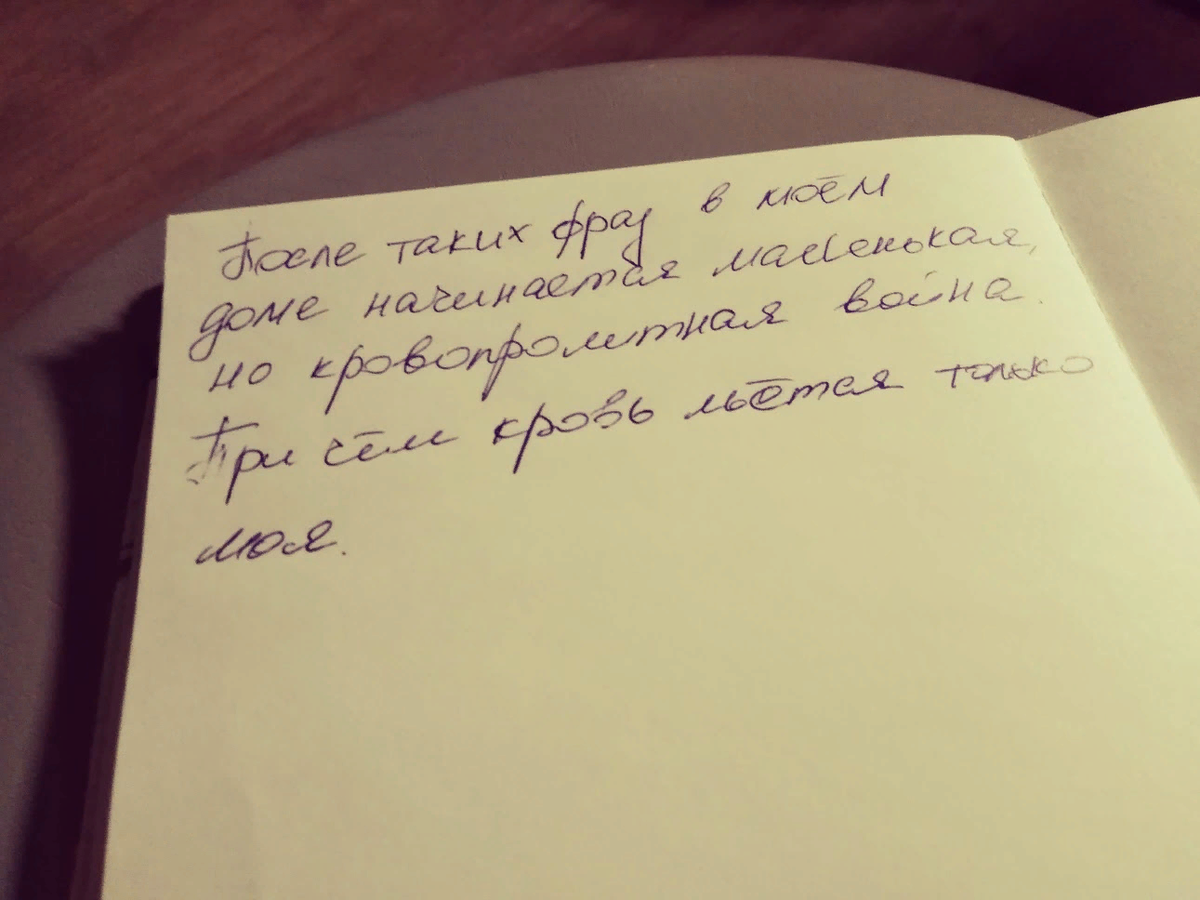 После таких фраз в моём
доме начинается маленькая,
но кровопролитная война.
При чём кровь льётся только
моя.